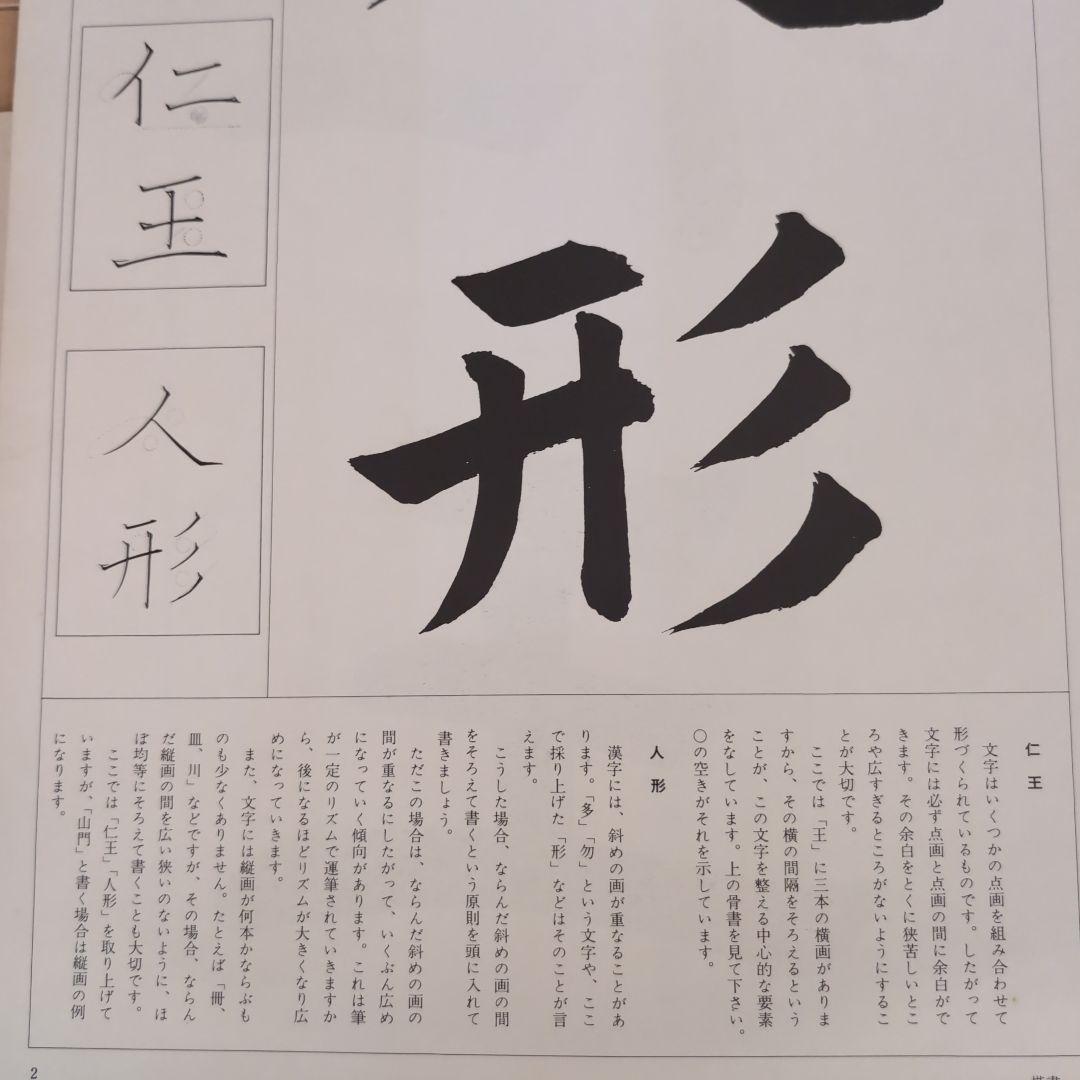 形
仁
王
人
形
仁王
文字はいくつかの点画を組み合わせて
形づくられているものです。したがって
文字には必ず点画と点画の間に余白がで
きます。その余白をとくに狭苦しいとこ
ろや広すぎるところがないようにするこ
とが大切です。
ここでは「王」に三本の横画がありま
すから、その横の間隔をそろえるという
ことが、この文字を整える中心的な要素
をなしています。上の骨書を見て下さい。
〇の空きがそれを示しています。
人形
漢字には、斜めの画が重なることがあ
ります。「多」「勿」という文字や、ここ
で採り上げた「形」などはそのことが言
えます。
こうした場合、ならんだ斜めの画の間
をそろえて書くという原則を頭に入れて
書きましょう。
ただこの場合は、ならんだ斜めの画の
間が重なるにしたがって、いくぶん広め
になっていく傾向があります。これは筆
が一定のリズムで運筆されていきますか
ら、後になるほどリズムが大きくなり広
めになっていきます。
また、文字には縦画が何本かならぶも
のも少なくありません。たとえば「冊、
皿、川」などですが、その場合、ならん
だ縦画の間を広い狭いのないように、ほ
ぼ均等にそろえて書くことも大切です。
ここでは「仁王」「人形」を取り上げて
いますが、「山門」と書く場合は縦画の例
になります。
2